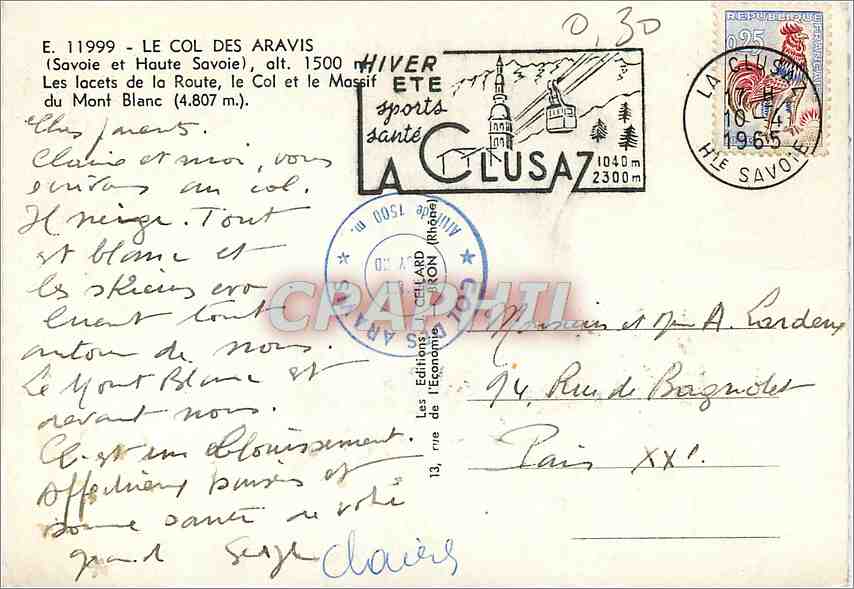 0,30
E. 11999 - LE COL DES ARAVIS
(Savoie et Haute Savoie), alt. 1500 m
Les lacets de la Route, le Col et le Massif
du Mont Blanc (4.807 m.).
HIVER
ETE
sports
santé
LA CLUSAZ
1040 m
2300 m
REPUBLIQUE FRANÇAISE
0,25
LA CLUSAZ
17 H
10 - 4
1965
HTE SAVOIE
Chers parents.
Claire et moi, vous
écrivons au col.
Il neige. Tout
est blanc et
les skieurs évo
luent tout
autour de nous.
Le Mont Blanc est
devant nous.
C'est un éblouissement.
Affectueux baisers et
bonne santé de votre
grand Serge
Claire
COL DES ARAVIS
Altitude 1500 m.
CPAPHIL
Les Editions J. CELLARD
13, rue de l'Economie BRON (Rhône)
Monsieur et Mme A. Lardeux
94, Rue de Bagnolet
Paris XXe.